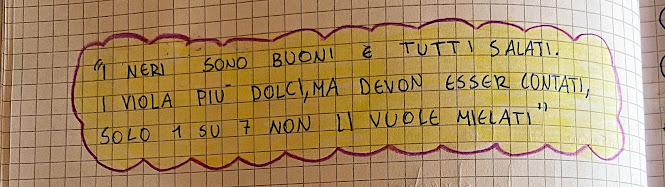 "I NERI SONO BUONI E TUTTI SALATI.
I VIOLA PIÙ DOLCI, MA DEVON ESSER CONTATI,
SOLO 1 SU 7 NON LI VUOLE MIELATI"